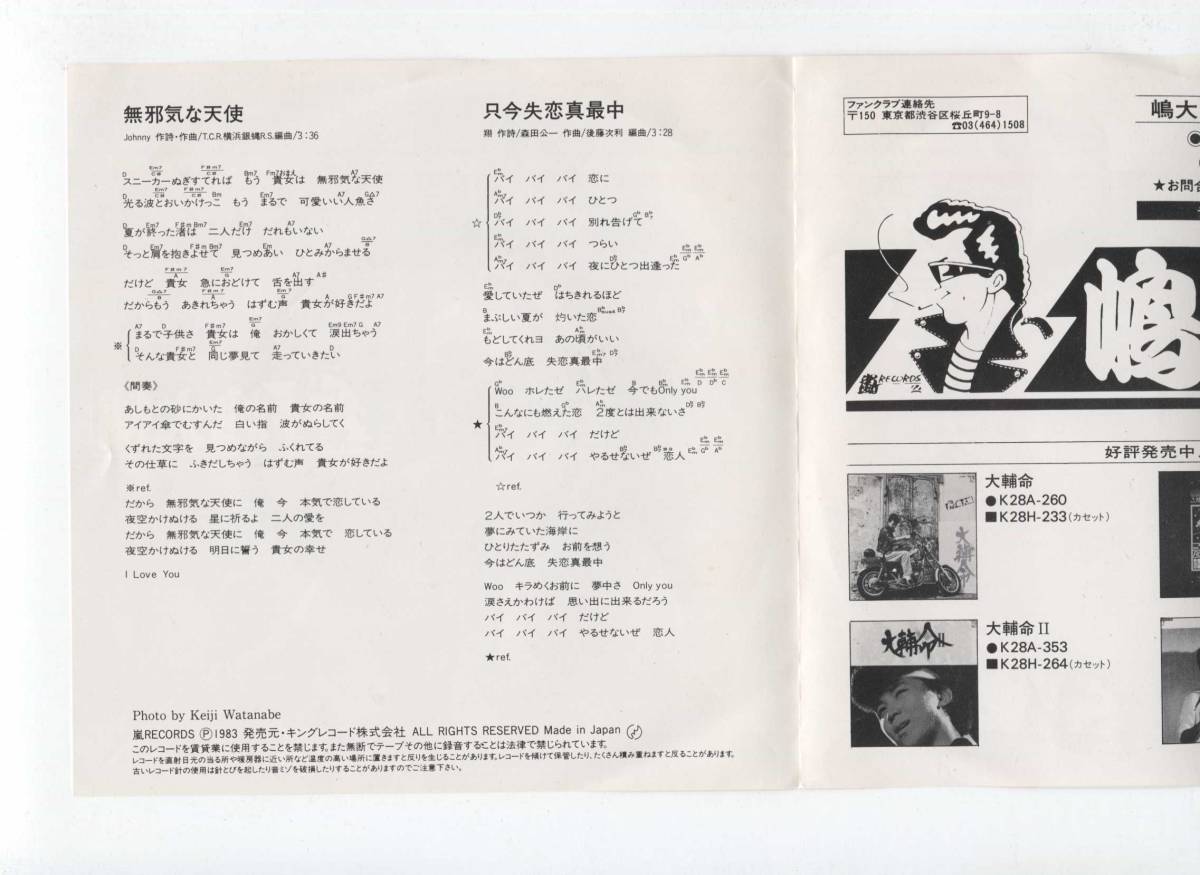 無邪気な天使
Johnny 作詩・作曲/T.C.R.横浜銀蝿R.S.編曲/3:36
スニーカーぬぎすてれば もう 貴女は 無邪気な天使
光る波とおいかけっこ もう まるで 可愛いい人魚さ
夏が終った渚は 二人だけ だれもいない
そっと肩を抱きよせて 見つめあい ひとみからませる
だけど 貴女 急におどけて 舌を出す
だからもう あきれちゃう はずむ声 貴女が好きだよ
※ まるで子供さ 貴女は 俺 おかしくて 涙出ちゃう
そんな貴女と 同じ夢見て 走っていきたい
《間奏》
あしもとの砂にかいた 俺の名前 貴女の名前
アイアイ傘でむすんだ 白い指 波がぬらしてく
くずれた文字を 見つめながら ふくれてる
その仕草に ふきだしちゃう はずむ声 貴女が好きだよ
※ref.
だから 無邪気な天使に 俺 今 本気で恋している
夜空かけぬける 星に祈るよ 二人の愛を
だから 無邪気な天使に 俺 今 本気で 恋している
夜空かけぬける 明日に誓う 貴女の幸せ
I Love You
只今失恋真最中
翔 作詩/森田公一 作曲/後藤次利 編曲/3:28
バイ バイ バイ 恋に
バイ バイ バイ ひとつ
☆ バイ バイ バイ 別れ告げて
バイ バイ バイ つらい
バイ バイ バイ 夜にひとつ出逢った
愛していたぜ はちきれるほど
まぶしい夏が 灼いた恋
もどしてくれヨ あの頃がいい
今はどん底 失恋真最中
Woo ホレたぜ ハレたぜ 今でもOnly you
こんなにも燃えた恋 2度とは出来ないさ
★ バイ バイ バイ だけど
バイ バイ バイ やるせないぜ 恋人
☆ref.
2人でいつか 行ってみようと
夢にみていた海岸に
ひとりたたずみ お前を想う
今はどん底 失恋真最中
Woo キラめくお前に 夢中さ Only you
涙さえかわけば 思い出に出来るだろう
バイ バイ バイ だけど
バイ バイ バイ やるせないぜ 恋人
★ref.
Photo by Keiji Watanabe
嵐RECORDS Ⓟ1983 発売元・キングレコード株式会社 ALL RIGHTS RESERVED Made in Japan
このレコードを賃貸業に使用することを禁じます。また無断でテープその他に録音することは法律で禁じられています。
レコードを直射日光の当る所や暖房器に近い所など温度の高い場所に置きますと反りを生じることがあります。レコードを傾けて保管したり、たくさん積み重ねますと反ることがあります。
古いレコード針の使用は針とびを起したり音ミゾを破損したりすることがありますのでご注意下さい。
ファンクラブ連絡先
〒150 東京都渋谷区桜丘町9-8
☎03(464)1508
嶋大
★お問合
嶋
嵐RECORDS
好評発売中
大輔命
●K28A-260
■K28H-233(カセット)
大輔命
大輔命II
●K28A-353
■K28H-264(カセット)
大輔命II